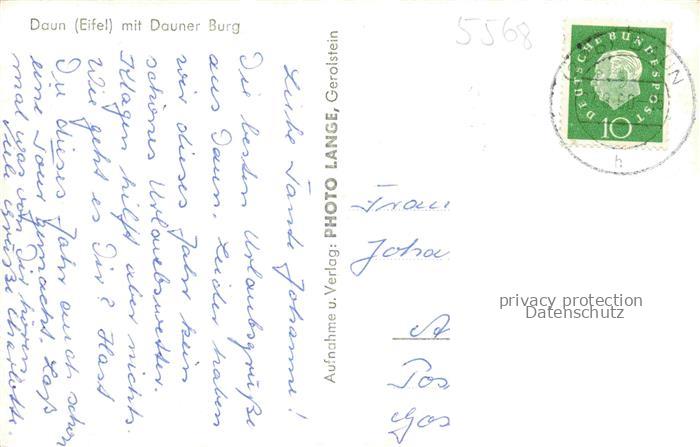 Daun (Eifel) mit Dauner Burg
5568
Liebe Tante Johanne!
Die besten Urlaubsgrüße
aus Daun. Leider haben
wir dieses Jahr kein
schönes Urlaubswetter.
Klagen hilft aber nichts.
Wie geht es Dir? Hast
Du dieses Jahr auch schon
eine Tour gemacht. Laß
mal was von Dir hören.
Viele Grüße Charlotte.
Aufnahme u. Verlag: PHOTO LANGE, Gerolstein
DEUTSCHE BUNDESPOST
10
h
Frau
Joha
A
Pos
Gas
privacy protection
Datenschutz